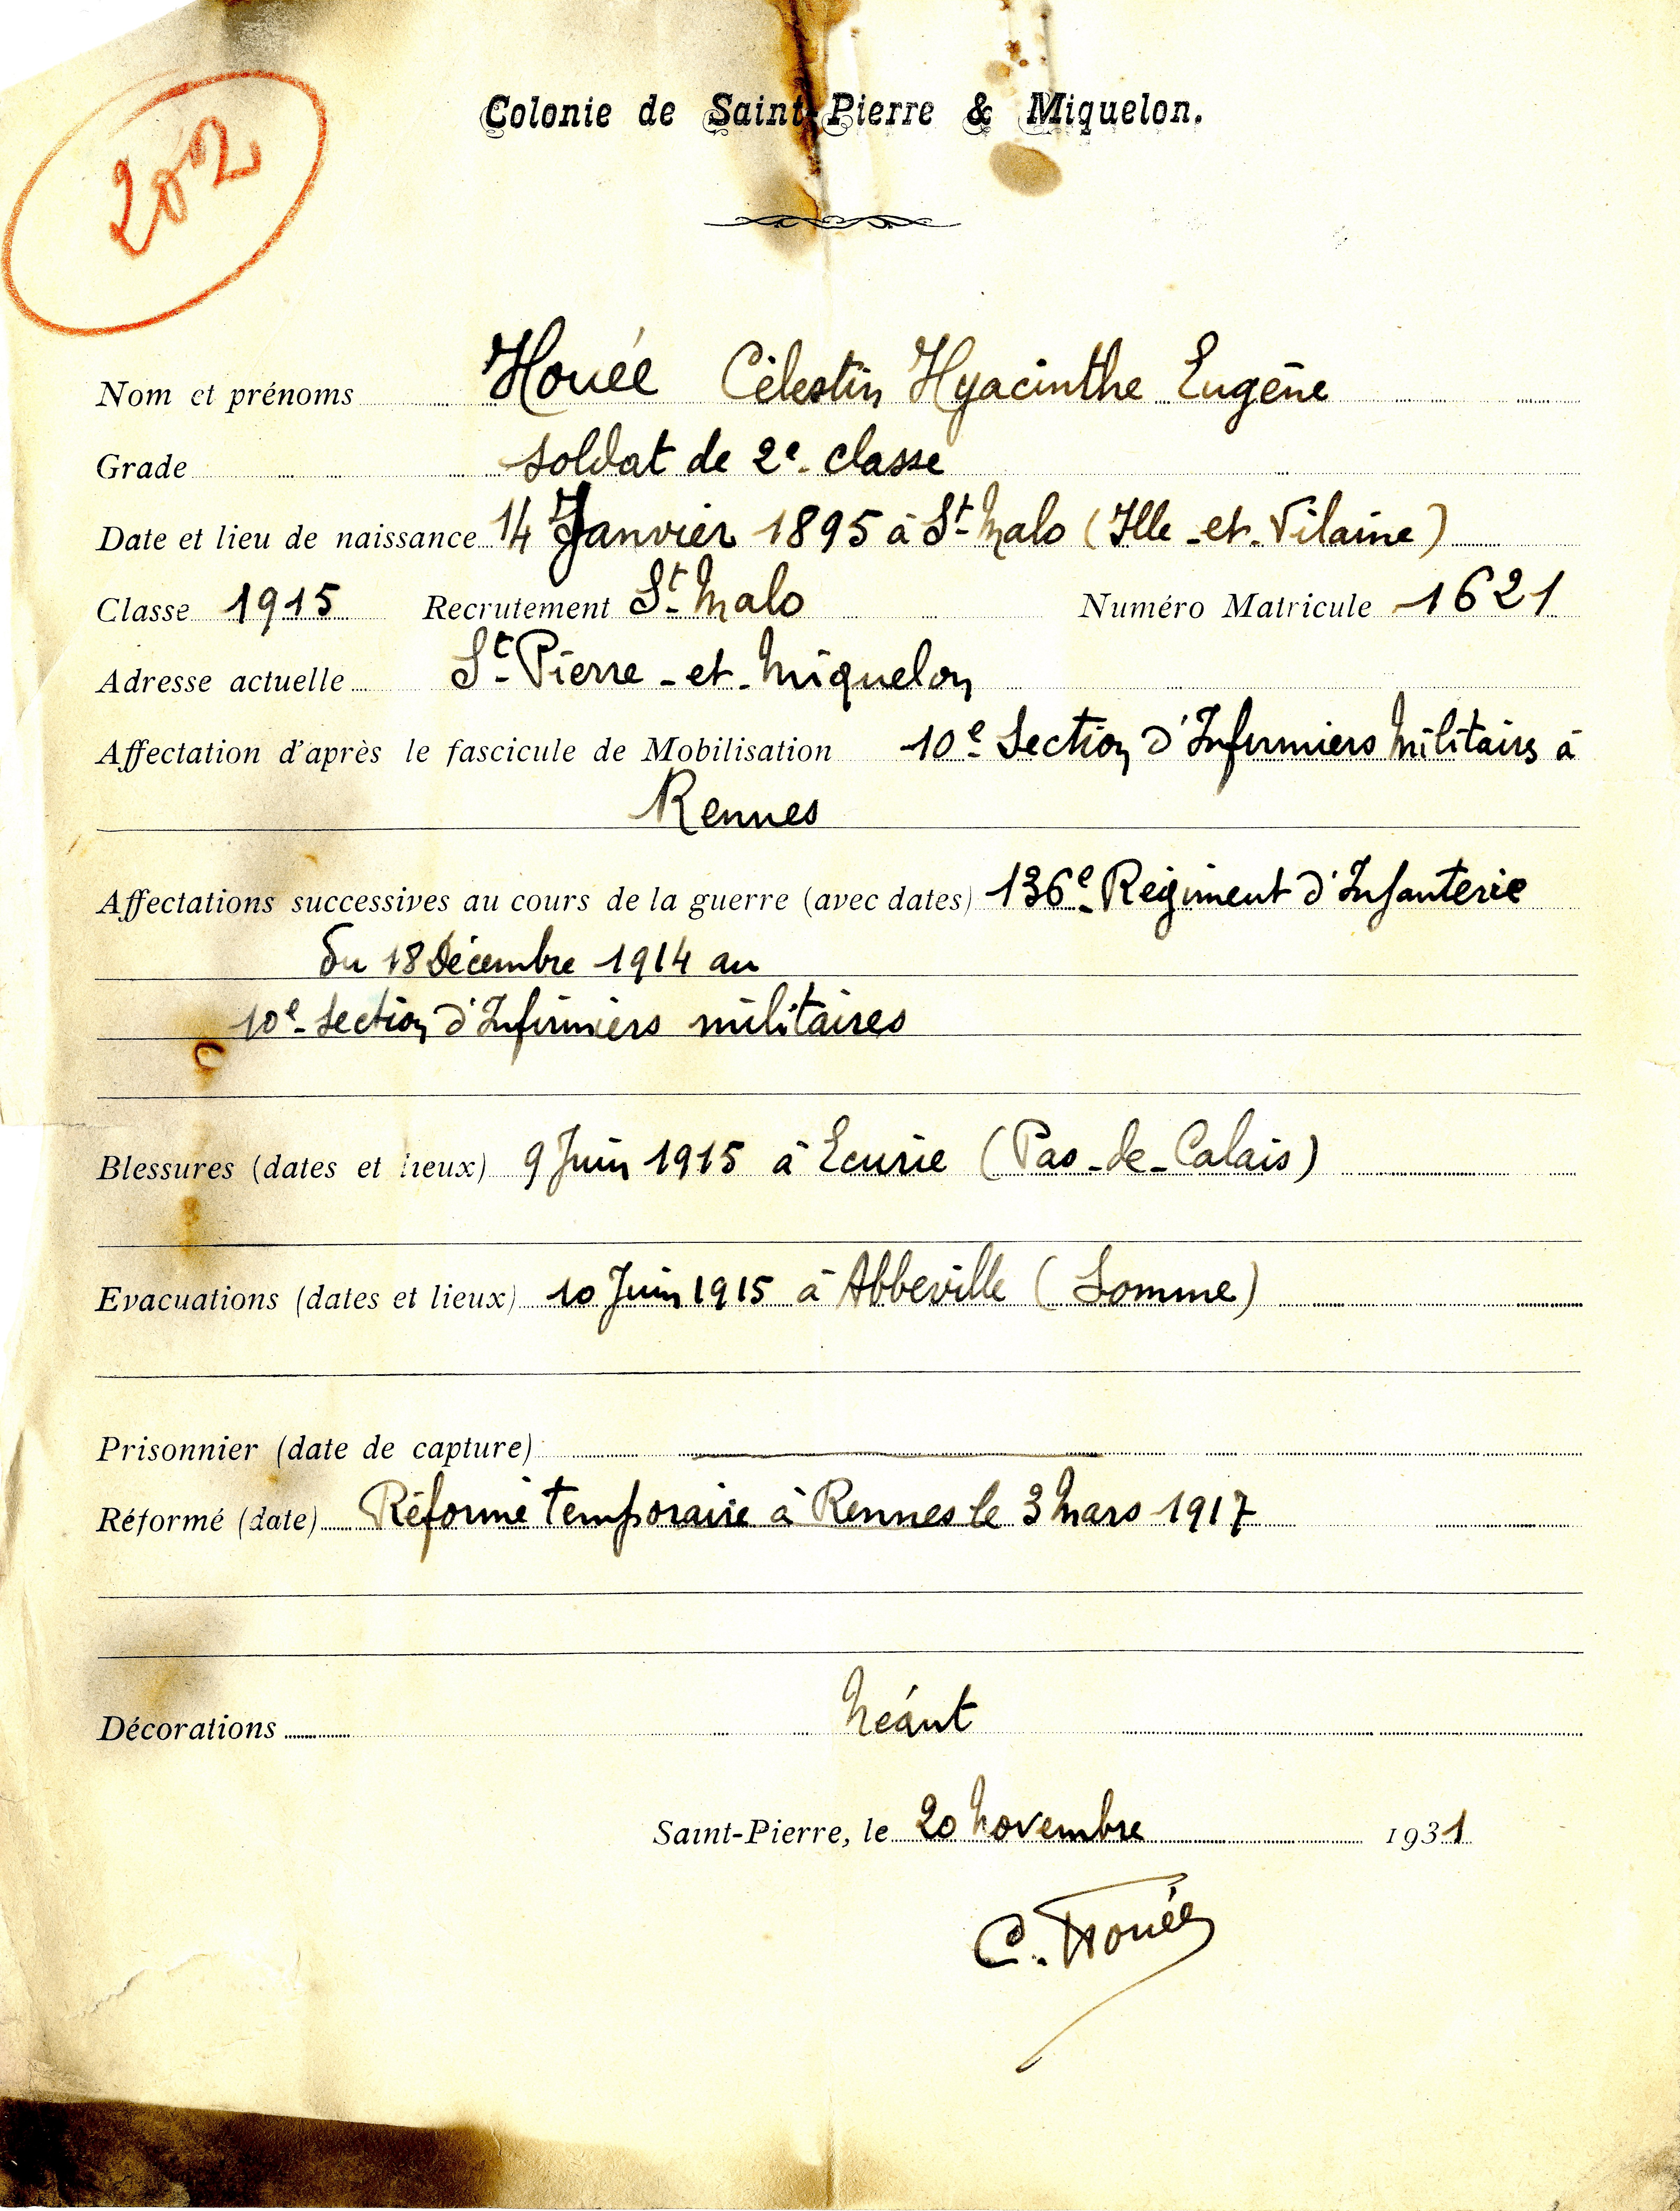 202
Colonie de Saint-Pierre & Miquelon.
Nom et prénoms Houée Célestin Hyacinthe Eugène
Grade soldat de 2e classe
Date et lieu de naissance 14 Janvier 1895 à St-Malo (Ille-et-Vilaine)
Classe 1915 Recrutement St-Malo Numéro Matricule 1621
Adresse actuelle St-Pierre-et-Miquelon
Affectation d'après le fascicule de Mobilisation 10e Section d'Infirmiers Militaires à
Rennes
Affectations successives au cours de la guerre (avec dates) 136e Régiment d'Infanterie
du 18 Décembre 1914 au
10e Section d'Infirmiers militaires
Blessures (dates et lieux) 9 Juin 1915 à Ecurie (Pas-de-Calais)
Evacuations (dates et lieux) 10 Juin 1915 à Abbeville (Somme)
Prisonnier (date de capture)
Réformé (date) Réformé temporaire à Rennes le 3 Mars 1917
Décorations Néant
Saint-Pierre, le 20 Novembre 1931
C. Houée